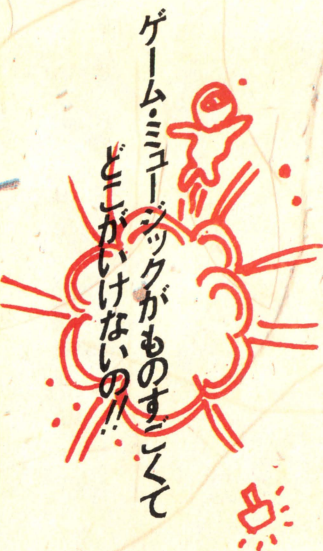 ゲーム・ミュージックがものすごくて
どこがいけないの!!